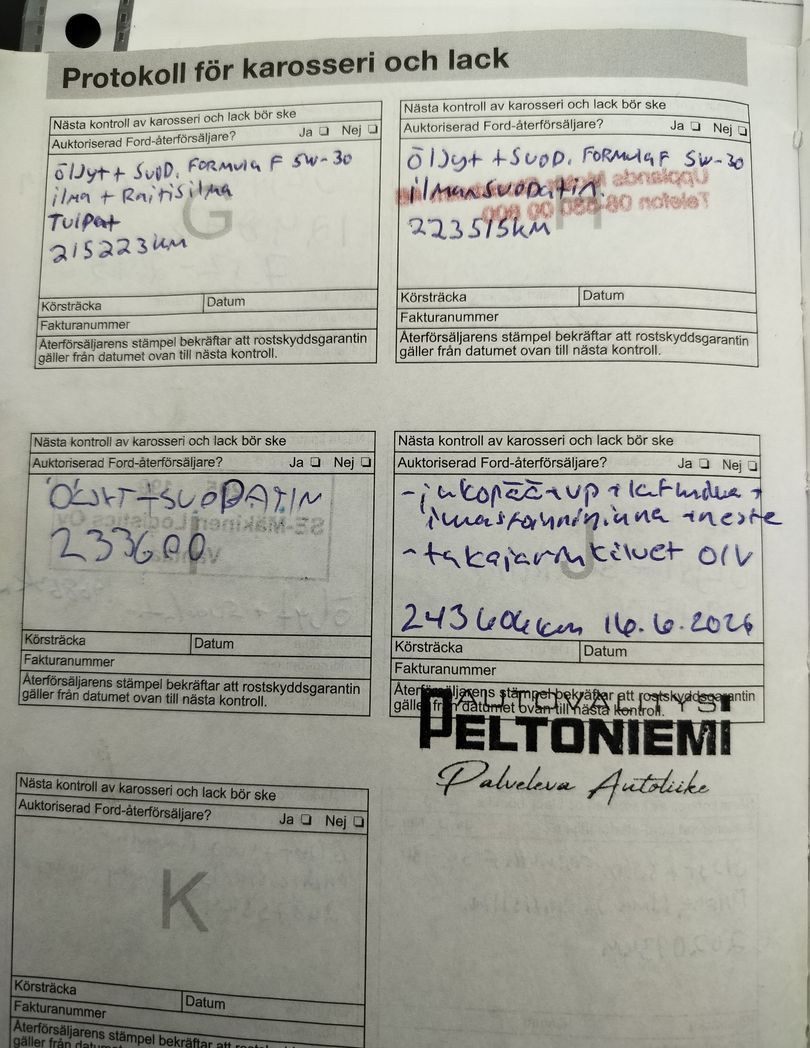 Protokoll för karosseri och lack
Nästa kontroll av karosseri och lack bör ske
Auktoriserad Ford-återförsäljare? Ja ❏ Nej ❏
öljyt + SUOD. FORMULA F 5W-30
ilma + Raitisilma
TULPAt
215223km
G
Körsträcka Datum
Fakturanummer
Återförsäljarens stämpel bekräftar att rostskyddsgarantin
gäller från datumet ovan till nästa kontroll.
Nästa kontroll av karosseri och lack bör ske
Auktoriserad Ford-återförsäljare? Ja ❏ Nej ❏
öljyt + SUOD. FORMULA F 5W-30
ilmansuodatin.
223515km
H
Körsträcka Datum
Fakturanummer
Återförsäljarens stämpel bekräftar att rostskyddsgarantin
gäller från datumet ovan till nästa kontroll.
Nästa kontroll av karosseri och lack bör ske
Auktoriserad Ford-återförsäljare? Ja ❏ Nej ❏
ÖLJYT + SUODATIN
233600
I
Körsträcka Datum
Fakturanummer
Återförsäljarens stämpel bekräftar att rostskyddsgarantin
gäller från datumet ovan till nästa kontroll.
Nästa kontroll av karosseri och lack bör ske
Auktoriserad Ford-återförsäljare? Ja ❏ Nej ❏
- jakopää + vp +
+ neste
- takajarrukilvet O/V
J
243606km 16.6.2026
Körsträcka Datum
Fakturanummer
Återförsäljarens stämpel bekräftar att rostskyddsgarantin
gäller från datumet ovan till nästa kontroll.
AUTOVÄLITYS
PELTONIEMI
Palveleva Autoliike
Nästa kontroll av karosseri och lack bör ske
Auktoriserad Ford-återförsäljare? Ja ❏ Nej ❏
K
Körsträcka Datum
Fakturanummer
Återförsäljarens stämpel bekräftar att rostskyddsgarantin
gäller från datumet ovan till nästa kontroll.